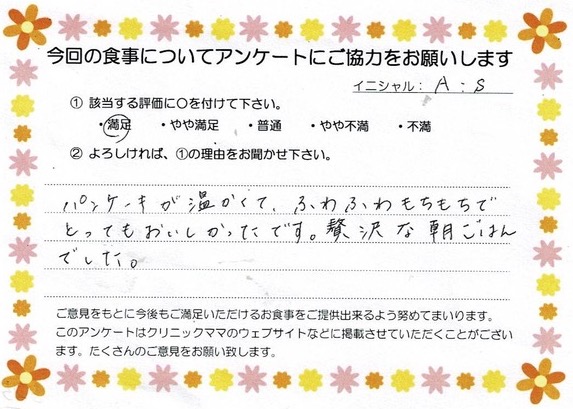 今回の食事についてアンケートにご協力をお願いします
イニシャル： A : S
① 該当する評価に〇を付けて下さい。
・満足 ・やや満足 ・普通 ・やや不満 ・不満
② よろしければ、①の理由をお聞かせ下さい。
パンケーキが温かくて、ふわふわもちもちで
とってもおいしかったです。贅沢な朝ごはん
でした。
ご意見をもとに今後もご満足いただけるお食事をご提供出来るよう努めてまいります。
このアンケートはクリニックママのウェブサイトなどに掲載させていただくことがござい
ます。たくさんのご意見をお願い致します。